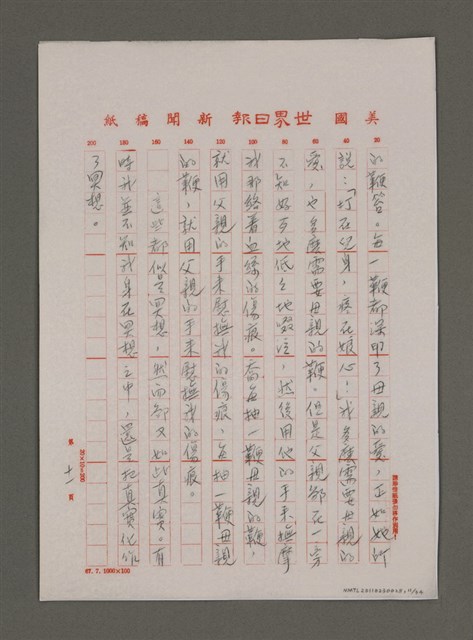 美國世界日報新聞稿紙
20 40 60 80 100 120 140 160 180 200
的鞭笞。每一鞭都深印了母親的愛,正如她所
說:「打在兒身,疼在娘心!」我多麼需要母親的
愛,也多麼需要母親的鞭。但是父親卻在一旁
不知好歹地低々地啜泣,然後用他的手來撫摩
我那絡着血緣的傷痕。奋每抽一鞭母親的鞭,
就用父親的手來慰撫我的傷痕,每抽一鞭母親
的鞭,就用父親的手來慰撫我的傷痕。
這些都似是冥想,然而卻又如此真實。有
時我並不知我身在冥想之中,還是把真實化做
了冥想。
第十一頁
20×10=200
67.7.1000×100